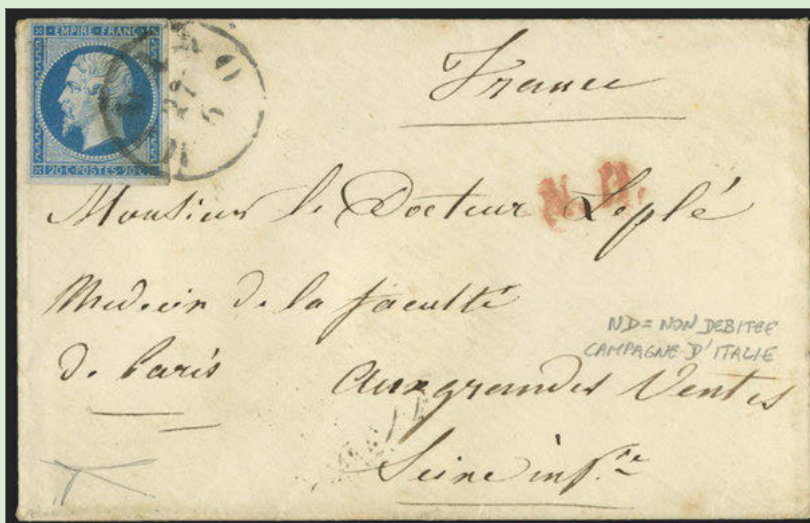 EMPIRE FRANC
20C POSTES 20C
27
France
N.D.
Monsieur le Docteur Leplé
Medecin de la faculté
ND = NON DEBITEE
CAMPAGNE D'ITALIE
de Paris
aux grandes Ventes
Seine infre